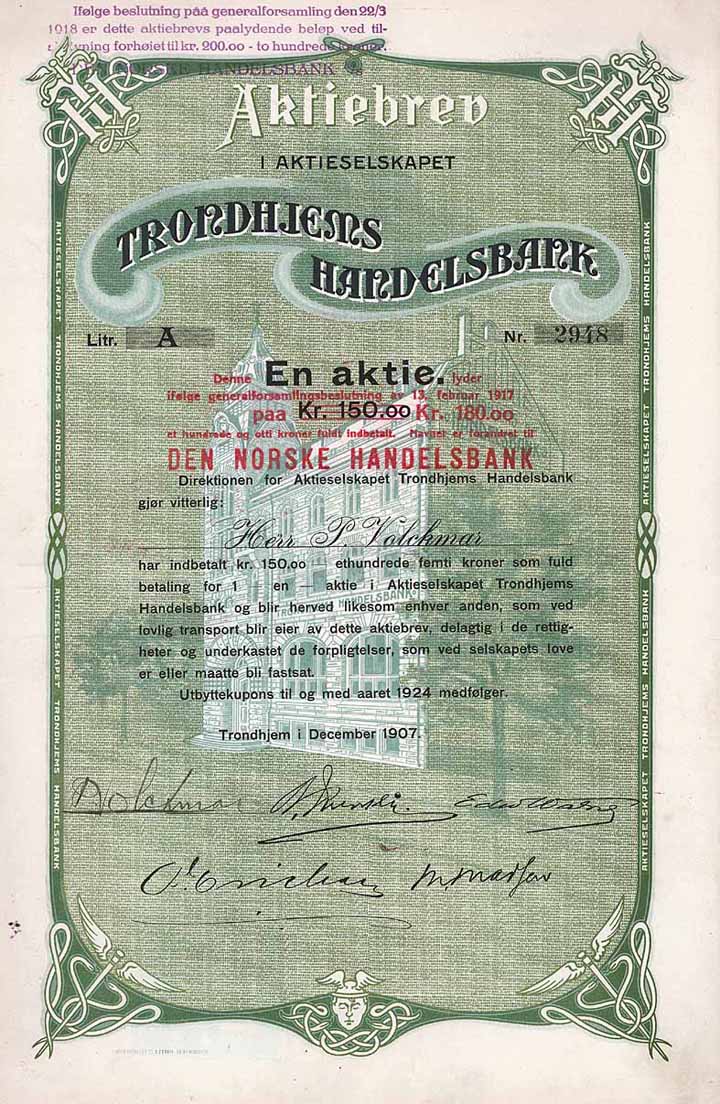 Ifølge beslutning paa generalforsamling den 22/3
1918 er dette aktiebrevs paalydende beløp ved til-
skrivning forhøiet til kr. 200.00 - to hundrede kroner.
DEN NORSKE HANDELSBANK
Aktiebrev
I AKTIESELSKAPET
TRONDHJEMS
HANDELSBANK
Litr. A Nr. 2948
Denne En aktie. lyder
ifølge generalforsamlingsbeslutning av 13. februar 1917
paa Kr. 150.00 Kr. 180.00
et hundrede og otti kroner fuldt indbetalt. Navnet er forandret til
DEN NORSKE HANDELSBANK
Direktionen for Aktieselskapet Trondhjems Handelsbank
gjør vitterlig:
Herr P. Volckmar
har indbetalt kr. 150,00 ethundrede femti kroner som fuld
betaling for 1 en aktie i Aktieselskapet Trondhjems
Handelsbank og blir herved likesom enhver anden, som ved
lovlig transport blir eier av dette aktiebrev, delagtig i de rettig-
heter og underkastet de forpligtelser, som ved selskapets love
er eller maatte bli fastsat.
Utbyttekupons til og med aaret 1924 medfølger.
Trondhjem i December 1907.
AKTIESELSKAPET TRONDHJEMS HANDELSBANK
AKTIESELSKAPET TRONDHJEMS HANDELSBANK
AKTIESELSKAPET TRONDHJEMS HANDELSBANK
AKTIESELSKAPET TRONDHJEMS HANDELSBANK
HANDELSBANK